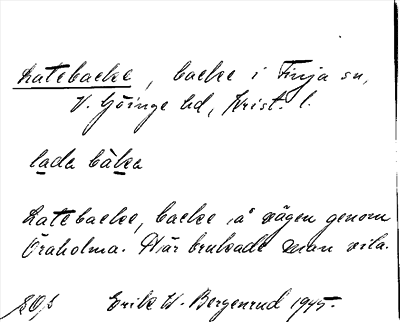 Latebacke, backe i Finja sn,
V. Göinge hd, Krist. l.
lada båka
Latebacke, backe å vägen genom
Öraholma. Här brukade man vila.
Erik W. Bergenrud 1945.